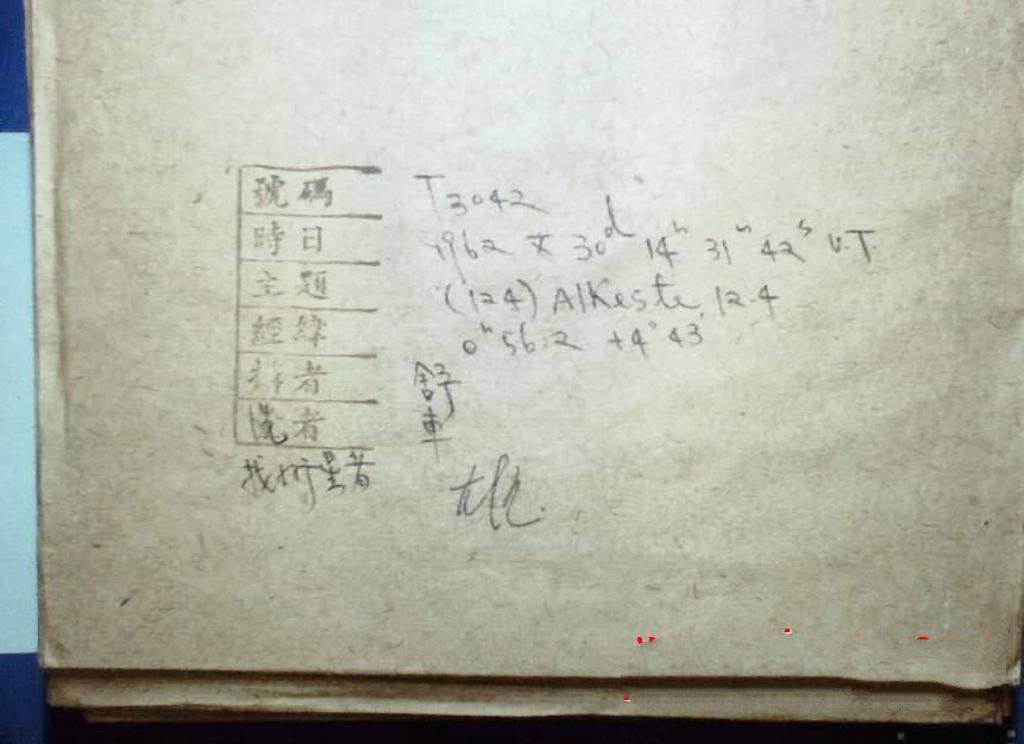 號碼 T3042
時日 1962 X 30d 14h 31m 42s U.T
主題 (124) Alkeste, 12.4
經緯 0h 56.2 +4° 43'
拍者 舒
洗者 車